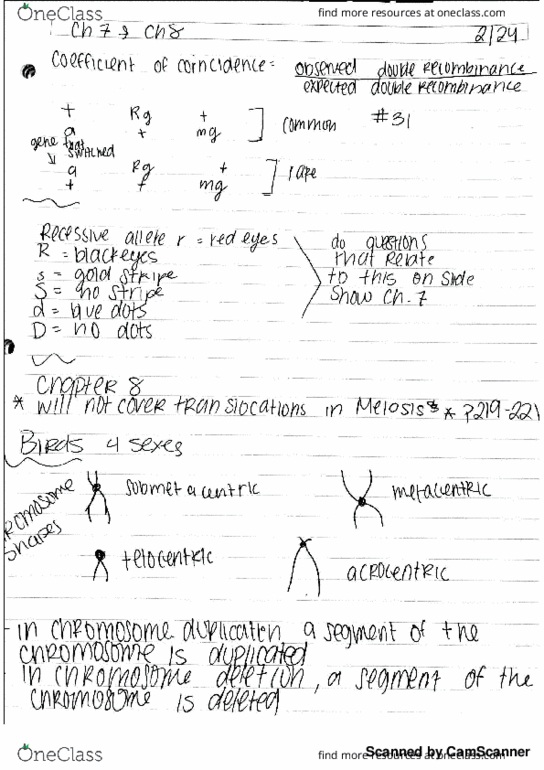 OneClass
find more resources at oneclass.com
Ch 7 & Ch 8
2/24
Coefficient of coincidence = observed double recombinance
expected double recombinance
+ Rg +
a + mg
common #31
gene that
switched
a Rg +
+ + mg
rare
Recessive allele r = red eyes
R = black eyes
s = gold stripe
S = no stripe
d = blue dots
D = no dots
do questions
that relate
to this on slide
show Ch. 7
Chapter 8
* will not cover translocations in Meiosis * P219-221
Birds 4 sexes
chromosome
shapes
submetacentric
metacentric
telocentric
acrocentric
- in chromosome duplication a segment of the
chromosome is duplicated
in chromosome deletion, a segment of the
chromosome is deleted
OneClass
find more resources at oneclass.com
Scanned by CamScanner